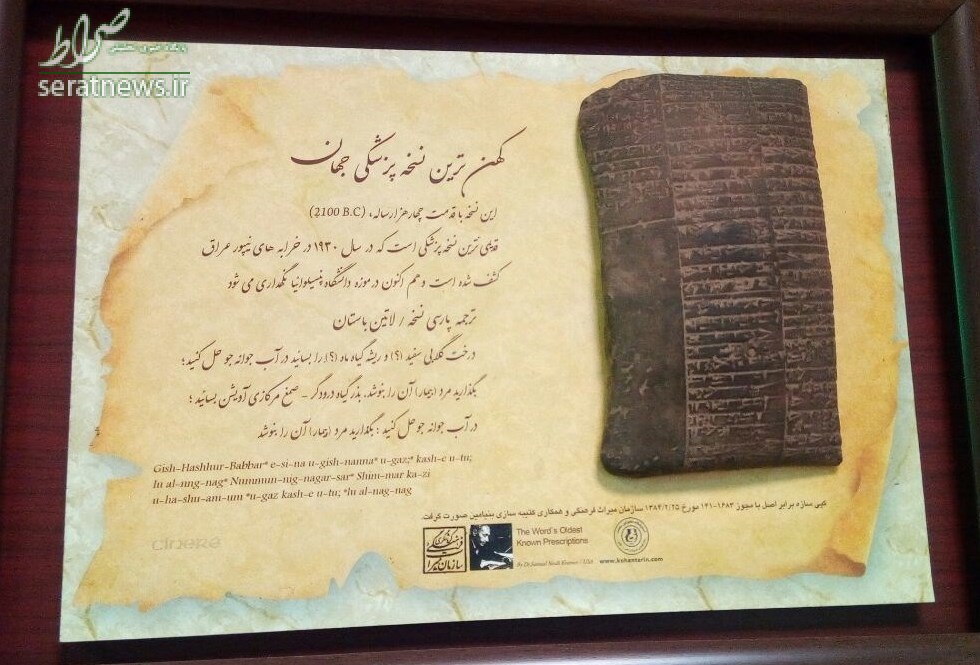 صراط
seratnews.ir
کهن ترین نسخه پزشکی جهان
این نسخه با قدمت چهار هزار ساله، (2100 B.C)
قدیمی ترین نسخه پزشکی است که در سال ۱۹۳۰ در خرابه های نیپور عراق
کشف شده است و هم اکنون در موزه دانشگاه پنسیلوانیا نگهداری می شود
ترجمه پارسی نسخه / لاتین باستان
درخت گلابی سفید (؟) و ریشه گیاه ماه (؟) را بسائید در آب جوانه جو حل کنید؛
بگذارید مرد (بیمار) آن را بنوشد، بذر گیاه درودگر - صمغ مرکازی آویشن بسائید ؛
در آب جوانه جو حل کنید ؛ بگذارید مرد (بیمار) آن را بنوشد
Gish-Hashhur-Babbar* e-si-na u-gish-nanna* u-gaz;* kash-e u-tu;
lu al-nng-nag* Nummun-nig-nagar-sar* Shim-mar ka-zi
u-ha-shu-am-um *u-gaz kash-e u-tu; *lu al-nag-nag
کپی سازه برابر اصل با مجوز ۱۶۸۳-۱۴۱ مورخ ۱۳۸۴/۲/۲۵ سازمان میراث فرهنگی و همکاری کتیبه سازی بنیامین صورت گرفت.
The Word's Oldest
Known Prescriptions
By Dr.Samuel Noah Kramer / USA
www.kohantarin.com